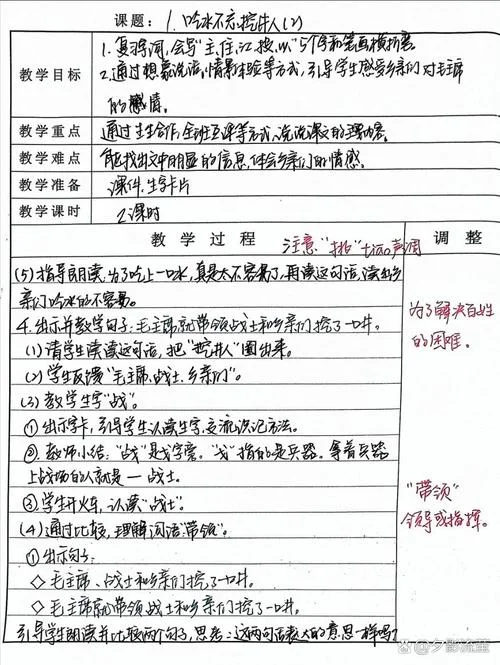 课题：1.吃水不忘挖井人(2)
教学目标
1.复习词,会写"主、住、江、没、以"5个字和笔画横折弯。
2.通过想象说话,情景体验等方式,引导学生感受乡亲们对毛主席
的感情。
教学重点
通过生生合作,全班互评等方式,说说课文的
教学难点
能找出文中明显的信息,体会乡亲们的情感。
教学准备
课件、生字卡片
教学课时
2课时
教学过程
注意"挖" 声调
调整
(5)指导朗读:为了吃上一口水,真是太不容易了,再读这句话,读出乡
亲们吃水的不容易。
为了解决百姓
的困难。
4.出示并教学句子:毛主席就带领战士和乡亲们挖了一口井。
(1)请学生读读这句话,把"挖井人"圈出来。
(2)学生反馈"毛主席、战士、乡亲们"。
(3)教学生字"战"。
①出示字卡,引导学生认读生字,交流识记方法。
②教师小结:"战"是戈字旁。"戈"指的是兵器。拿着兵器
上战场的人就是一战士。
③学生开火车,认读"战士"。
"带领"
领导或指挥。
(4)通过比较,理解词语"带领"。
①出示句子:
◇毛主席、战士和乡亲们挖了一口井。
◇毛主席就带领战士和乡亲们挖了一口井。
引导学生朗读并比较两个句子,思考:这两句话表达的意思一样吗?